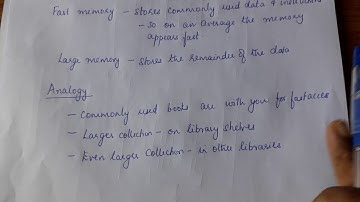 Fast memory - Stores commonly used data & instructions
- so on an average the memory
appears fast
Large memory - Stores the remainder of the data
Analogy
- Commonly used books are with you for fast access
- Larger collection - on library shelves
- Even larger collection - in other libraries